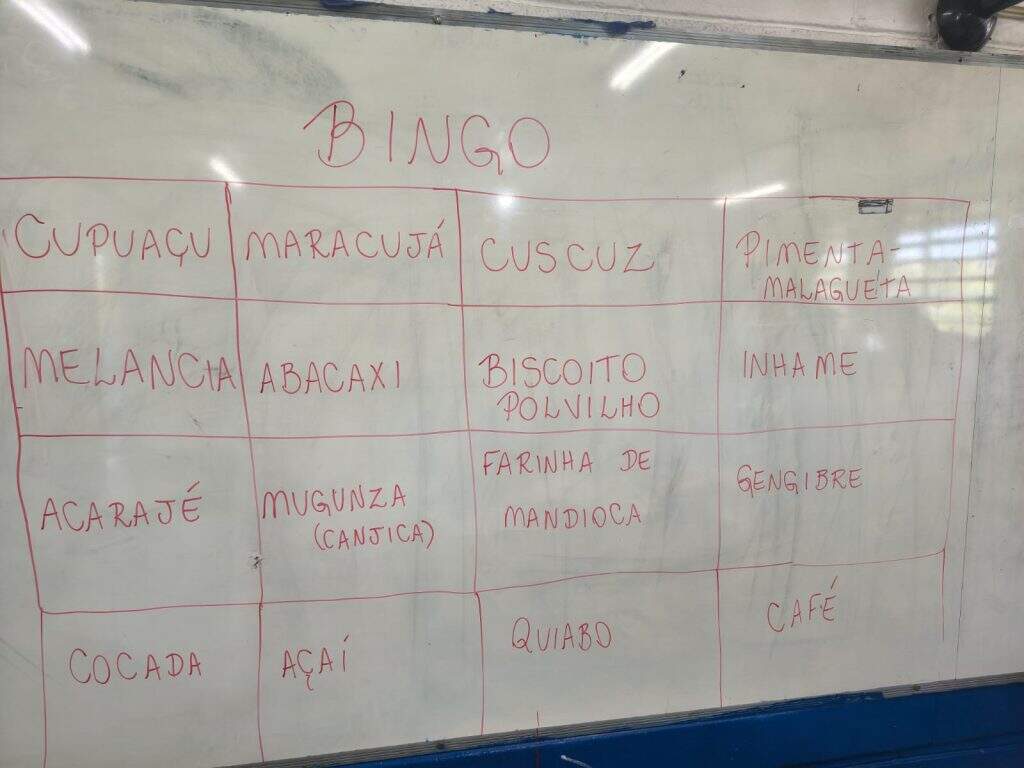 BINGO
CUPUAÇU
MARACUJÁ
CUSCUZ
PIMENTA-
MALAGUETA
MELANCIA
ABACAXI
BISCOITO
POLVILHO
INHAME
ACARAJÉ
MUGUNZA
(CANJICA)
FARINHA DE
MANDIOCA
GENGIBRE
COCADA
AÇAÍ
QUIABO
CAFÉ